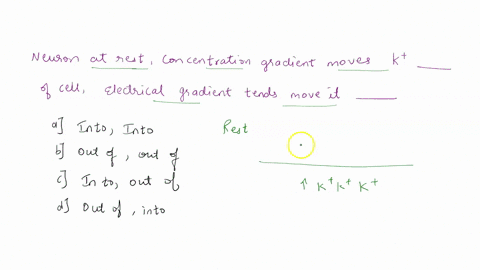 Neuron at rest, Concentration gradient moves K+ ____
of cell, Electrical gradient tends move it ____
a] Into, Into
b] Out of, out of
c] Into, out of
d] Out of, into
Rest
↑ K+ K+ K+